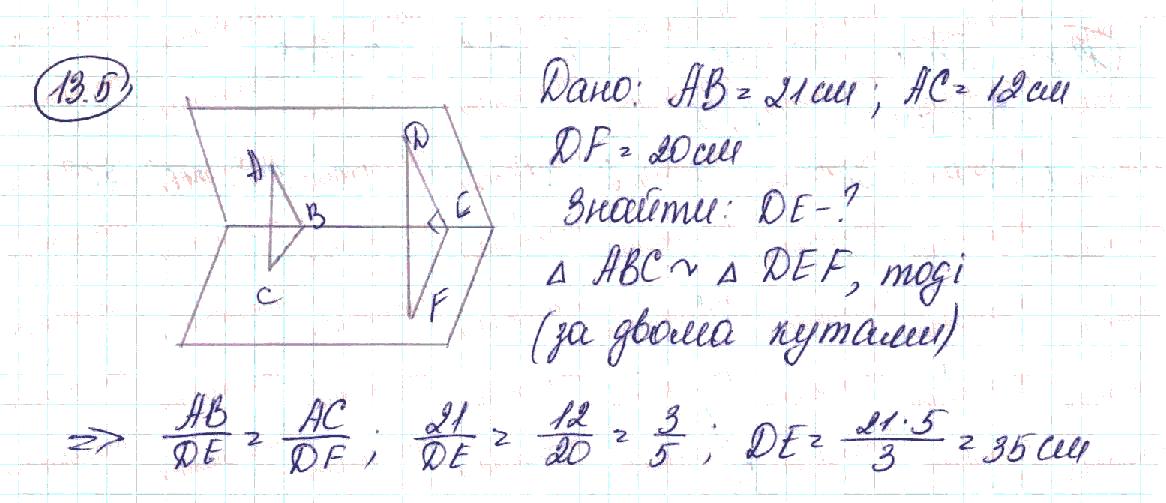 13.5
Дано: AB = 21 см; AC = 12 см
DF = 20 см
Знайти: DE - ?
△ ABC ~ △ DEF, тоді
(за двома кутами)
A
B
C
D
E
F
=> AB/DE = AC/DF; 21/DE = 12/20 = 3/5; DE = 21·5/3 = 35 см